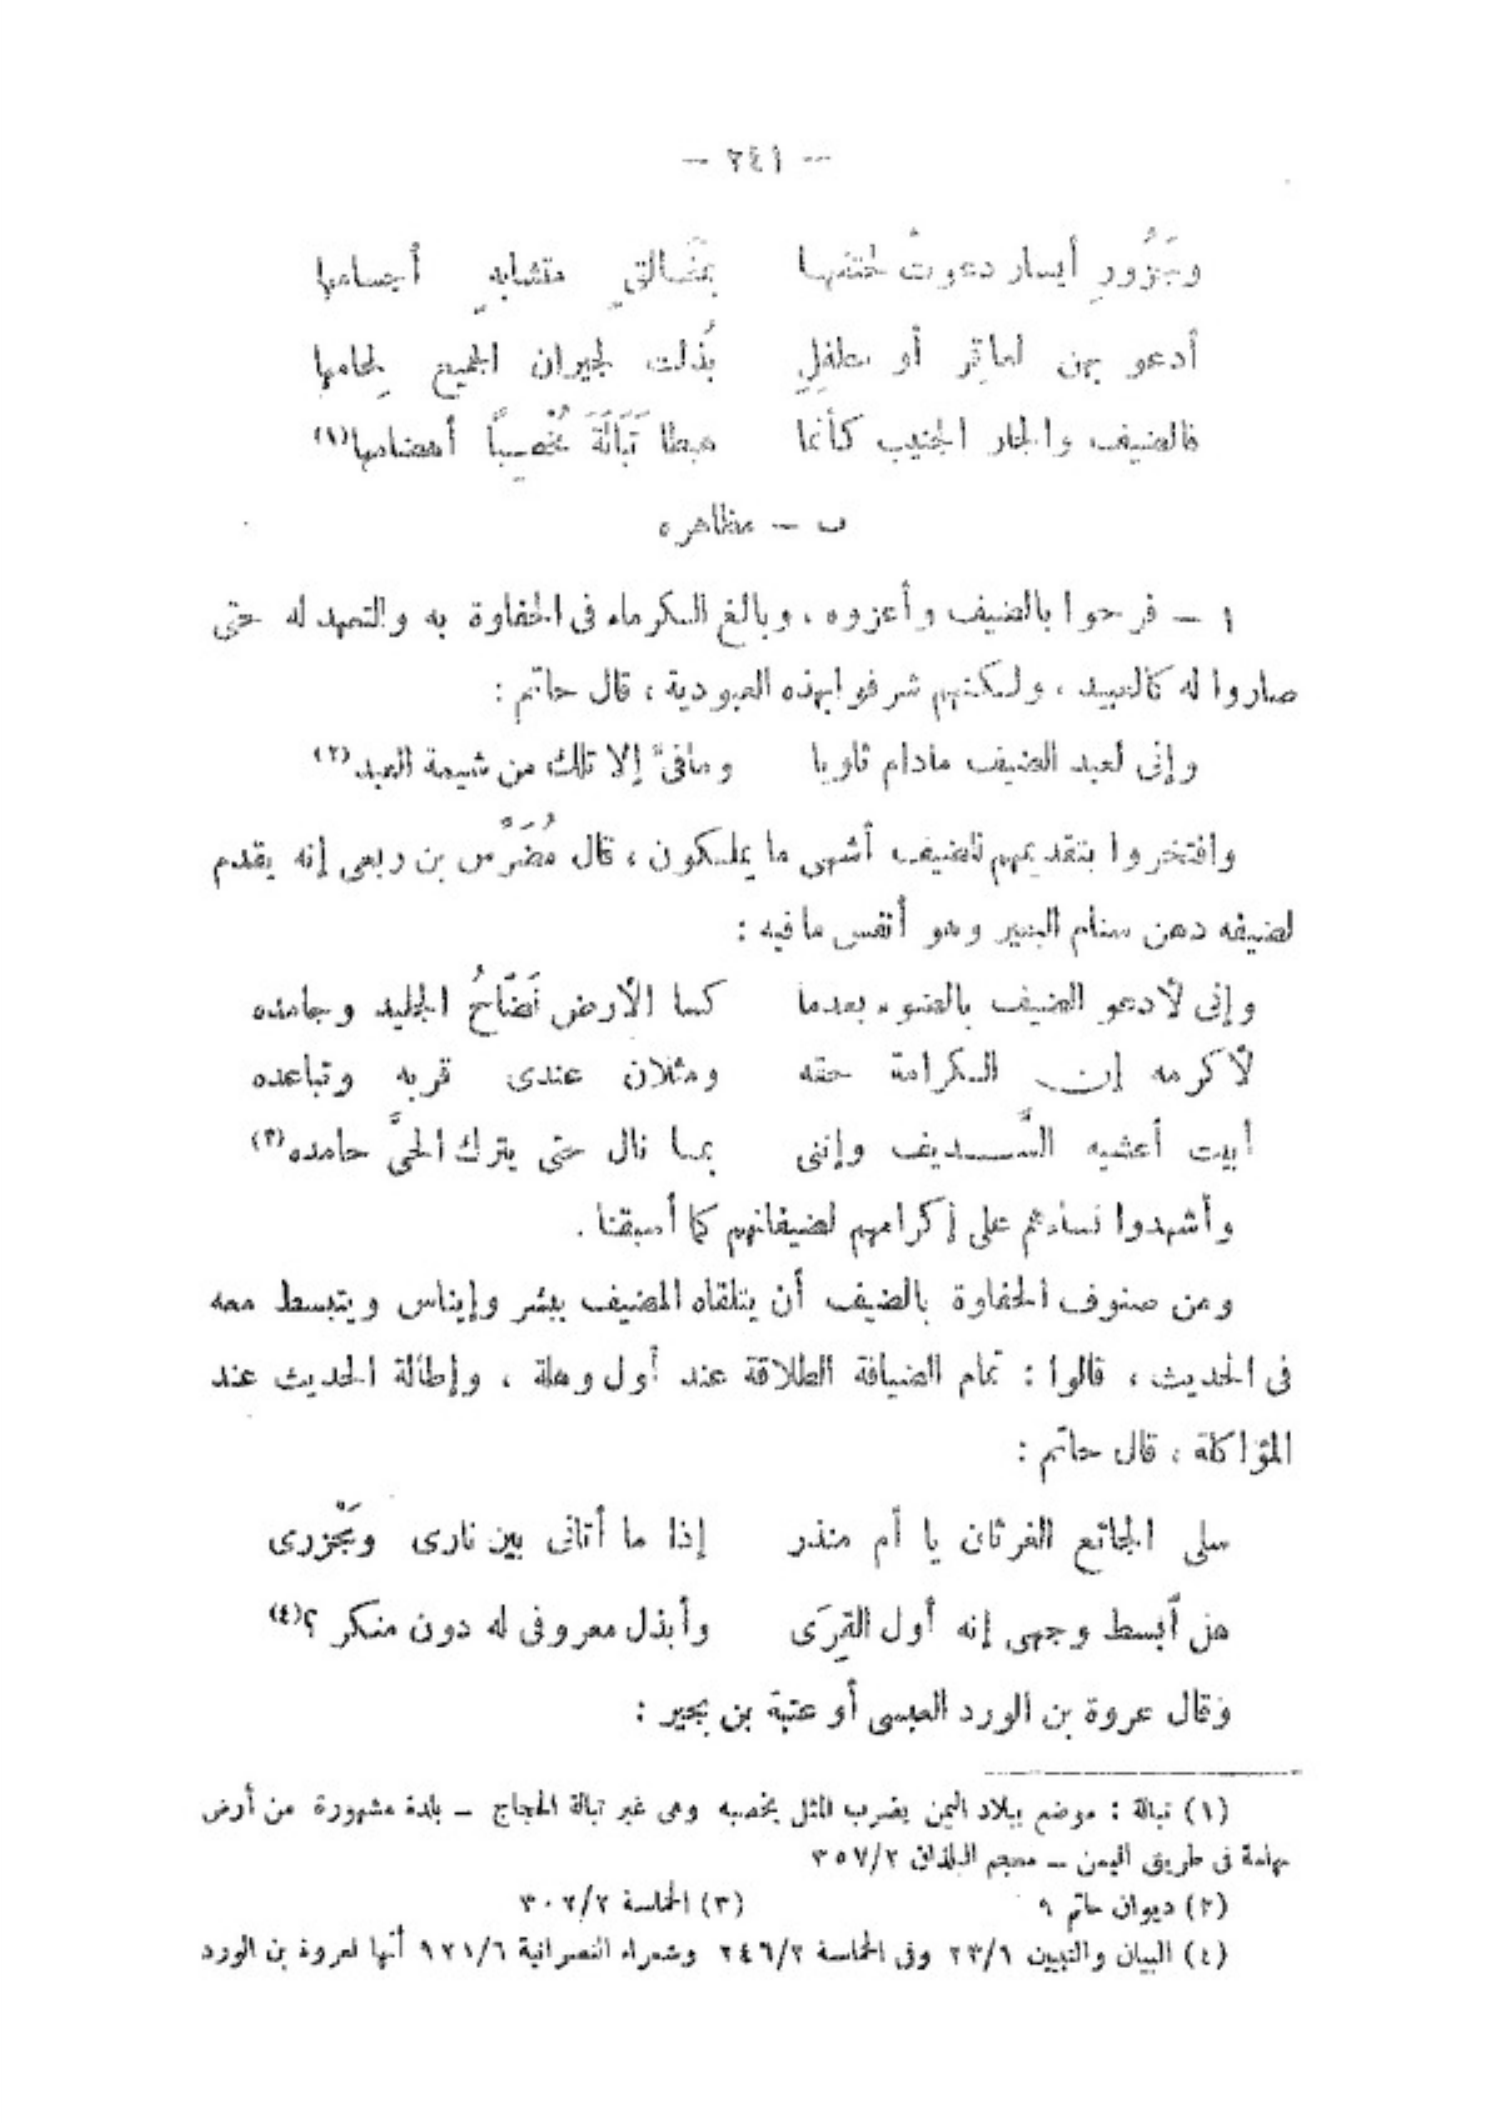 — ٢٤١ —
وجَزُورِ أيسار دعوتُ لحتفها بمَغَالقٍ متشابهٍ أجسامها
أدعو بهن لعاقِر أو مطفلٍ بُذلت لجيران الجميع لِحامها
فالضيف والجار الجنيب كأنما هبطا تَبَالَةَ مُخْصِبًا أهضامها(١)
ب — مظاهره
١ — فرحوا بالضيف وأعزوه ، وبالغ الكرماء فى الحفاوة به والتعهد له حتى
صاروا له كالعبيد ، ولكنهم شرفوا بهذه العبودية ، قال حاتم :
وإنى لعبد الضيف مادام ثاويا ومافىَّ إلا تلك من شيمة العبد(٢)
وافتخروا بتقديمهم للضيف أشهى ما يملكون ، قال مُضَرِّس بن ربعى إنه يقدم
لضيفه دهن سنام البعير وهو أنفس مافيه :
وإنى لأدعو الضيف بالضوء بعدما كسا الأرض نَضّاحُ الجليد وجامده
لأكرمه إن الكرامة حقه ومثلان عندى قربه وتباعده
أبيت أعشيه السَّديف وإننى بما نال حتى يترك الحىَّ حامده(٣)
وأشهدوا نساءهم على إكرامهم لضيفانهم كما أسبقنا .
ومن صنوف الحفاوة بالضيف أن يتلقاه المضيف ببشر وإيناس ويتبسط معه
فى الحديث ، قالوا : تمام الضيافة الطلاقة عند أول وهلة ، وإطالة الحديث عند
المؤاكلة ، قال حاتم :
سلى الجائع الغرثان يا أم منذر إذا ما أتانى بين نارى ومَجْزرى
هل أبسط وجهى إنه أول القِرَى وأبذل معروفى له دون منكر ؟(٤)
وقال عروة بن الورد العبسى أو عتبة بن بجير :
(١) تبالة : موضع ببلاد اليمن يضرب المثل بخصبه وهى غير تبالة الحجاج — بلدة مشهورة من أرض
تهامة فى طريق اليمن — معجم البلدان ٣٥٧/٢
(٢) ديوان حاتم ٩ (٣) الحماسة ٣٠٢/٢
(٤) البيان والتبيين ٢٣/١ وفى الحماسة ٢٤٦/٢ وشعراء النصرانية ٩٢١/٦ أنها لعروة بن الورد